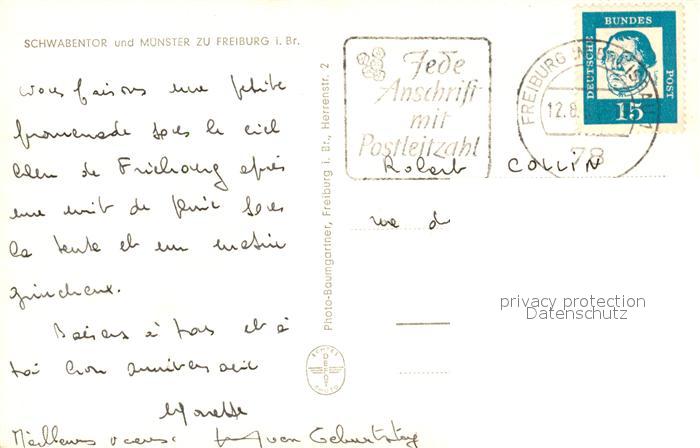 SCHWABENTOR und MÜNSTER ZU FREIBURG i. Br.
Nous faisons une petite
promenade sous le ciel
bleu de Fribourg après
une nuit de pluie sous
la tente et un matin
grincheux.
Baisers à tous et à
toi bon anniversaire
Meilleurs voeux: von Geburtstag
Photo-Baumgartner, Freiburg i. Br., Herrenstr. 2
ECHTES
DEFOT
PHOTO
Jede
Anschrift
mit
Postleitzahl
FREIBURG IM BREISGAU 1
12.8.
78
DEUTSCHE
BUNDES
POST
15
Robert COLLIN
rue d
privacy protection
Datenschutz